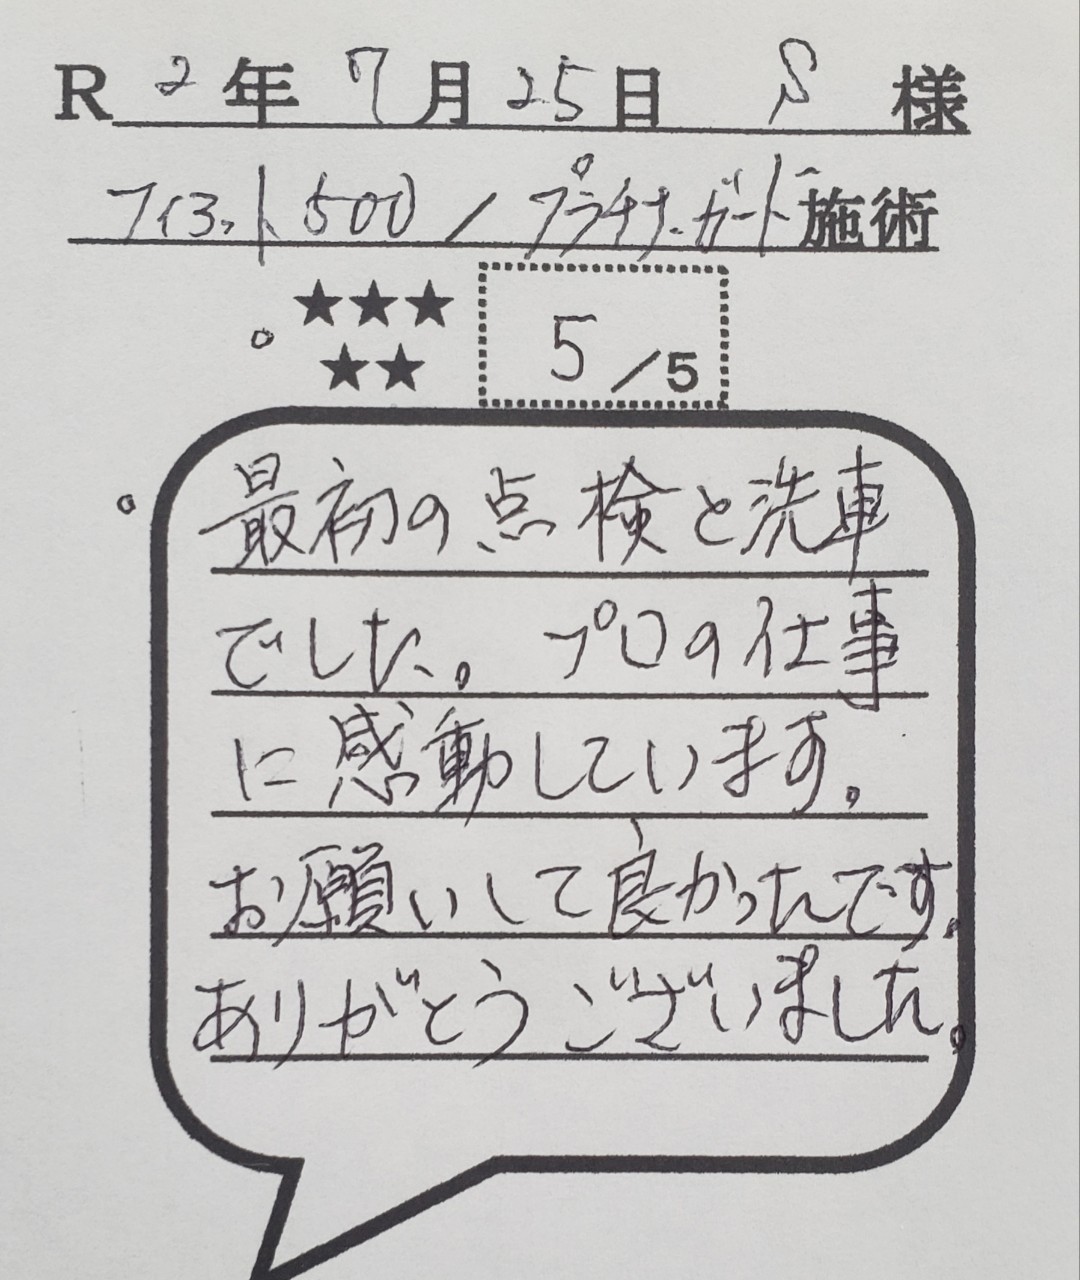 R 2年 7月 25日 S 様
フィアット500 / プラチナ・ガード 施術
★★★
★★
5/5
最初の点検と洗車
でした。プロの仕事
に感動しています。
お願いして良かったです。
ありがとうございました。